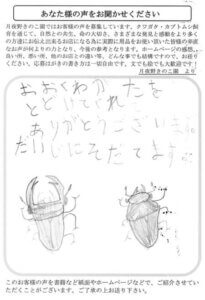 あなた様の声をお聞かせください
月夜野きのこ園ではお客様の声を募集しています。クワガタ・カブトムシ飼
育を通じて、自然との共生、命の大切さ、さまざまな発見と感動をより多く
の方達にお伝え出来るお店になる為に実際に用品をお使い頂いた皆様の率直
なお声が何よりの力となり、今後の参考となります。ホームページの感想、
良い所、悪い所、他のお店との違い等、どんな事でも結構ですので、お寄せ
ください。応募はがきの書き方は一切自由です。文でも絵でも大歓迎です！
月夜野きのこ園 より
おおくわがたを
とどけてくれて
だいじにそだてます。
このお客様の声を書籍など紙面やホームページなどで、ご紹介させていた
だくことがございます。ご了承の上お送り下さい。